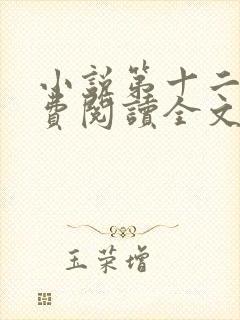 小説第十二
費閱讀全文
玉荣增